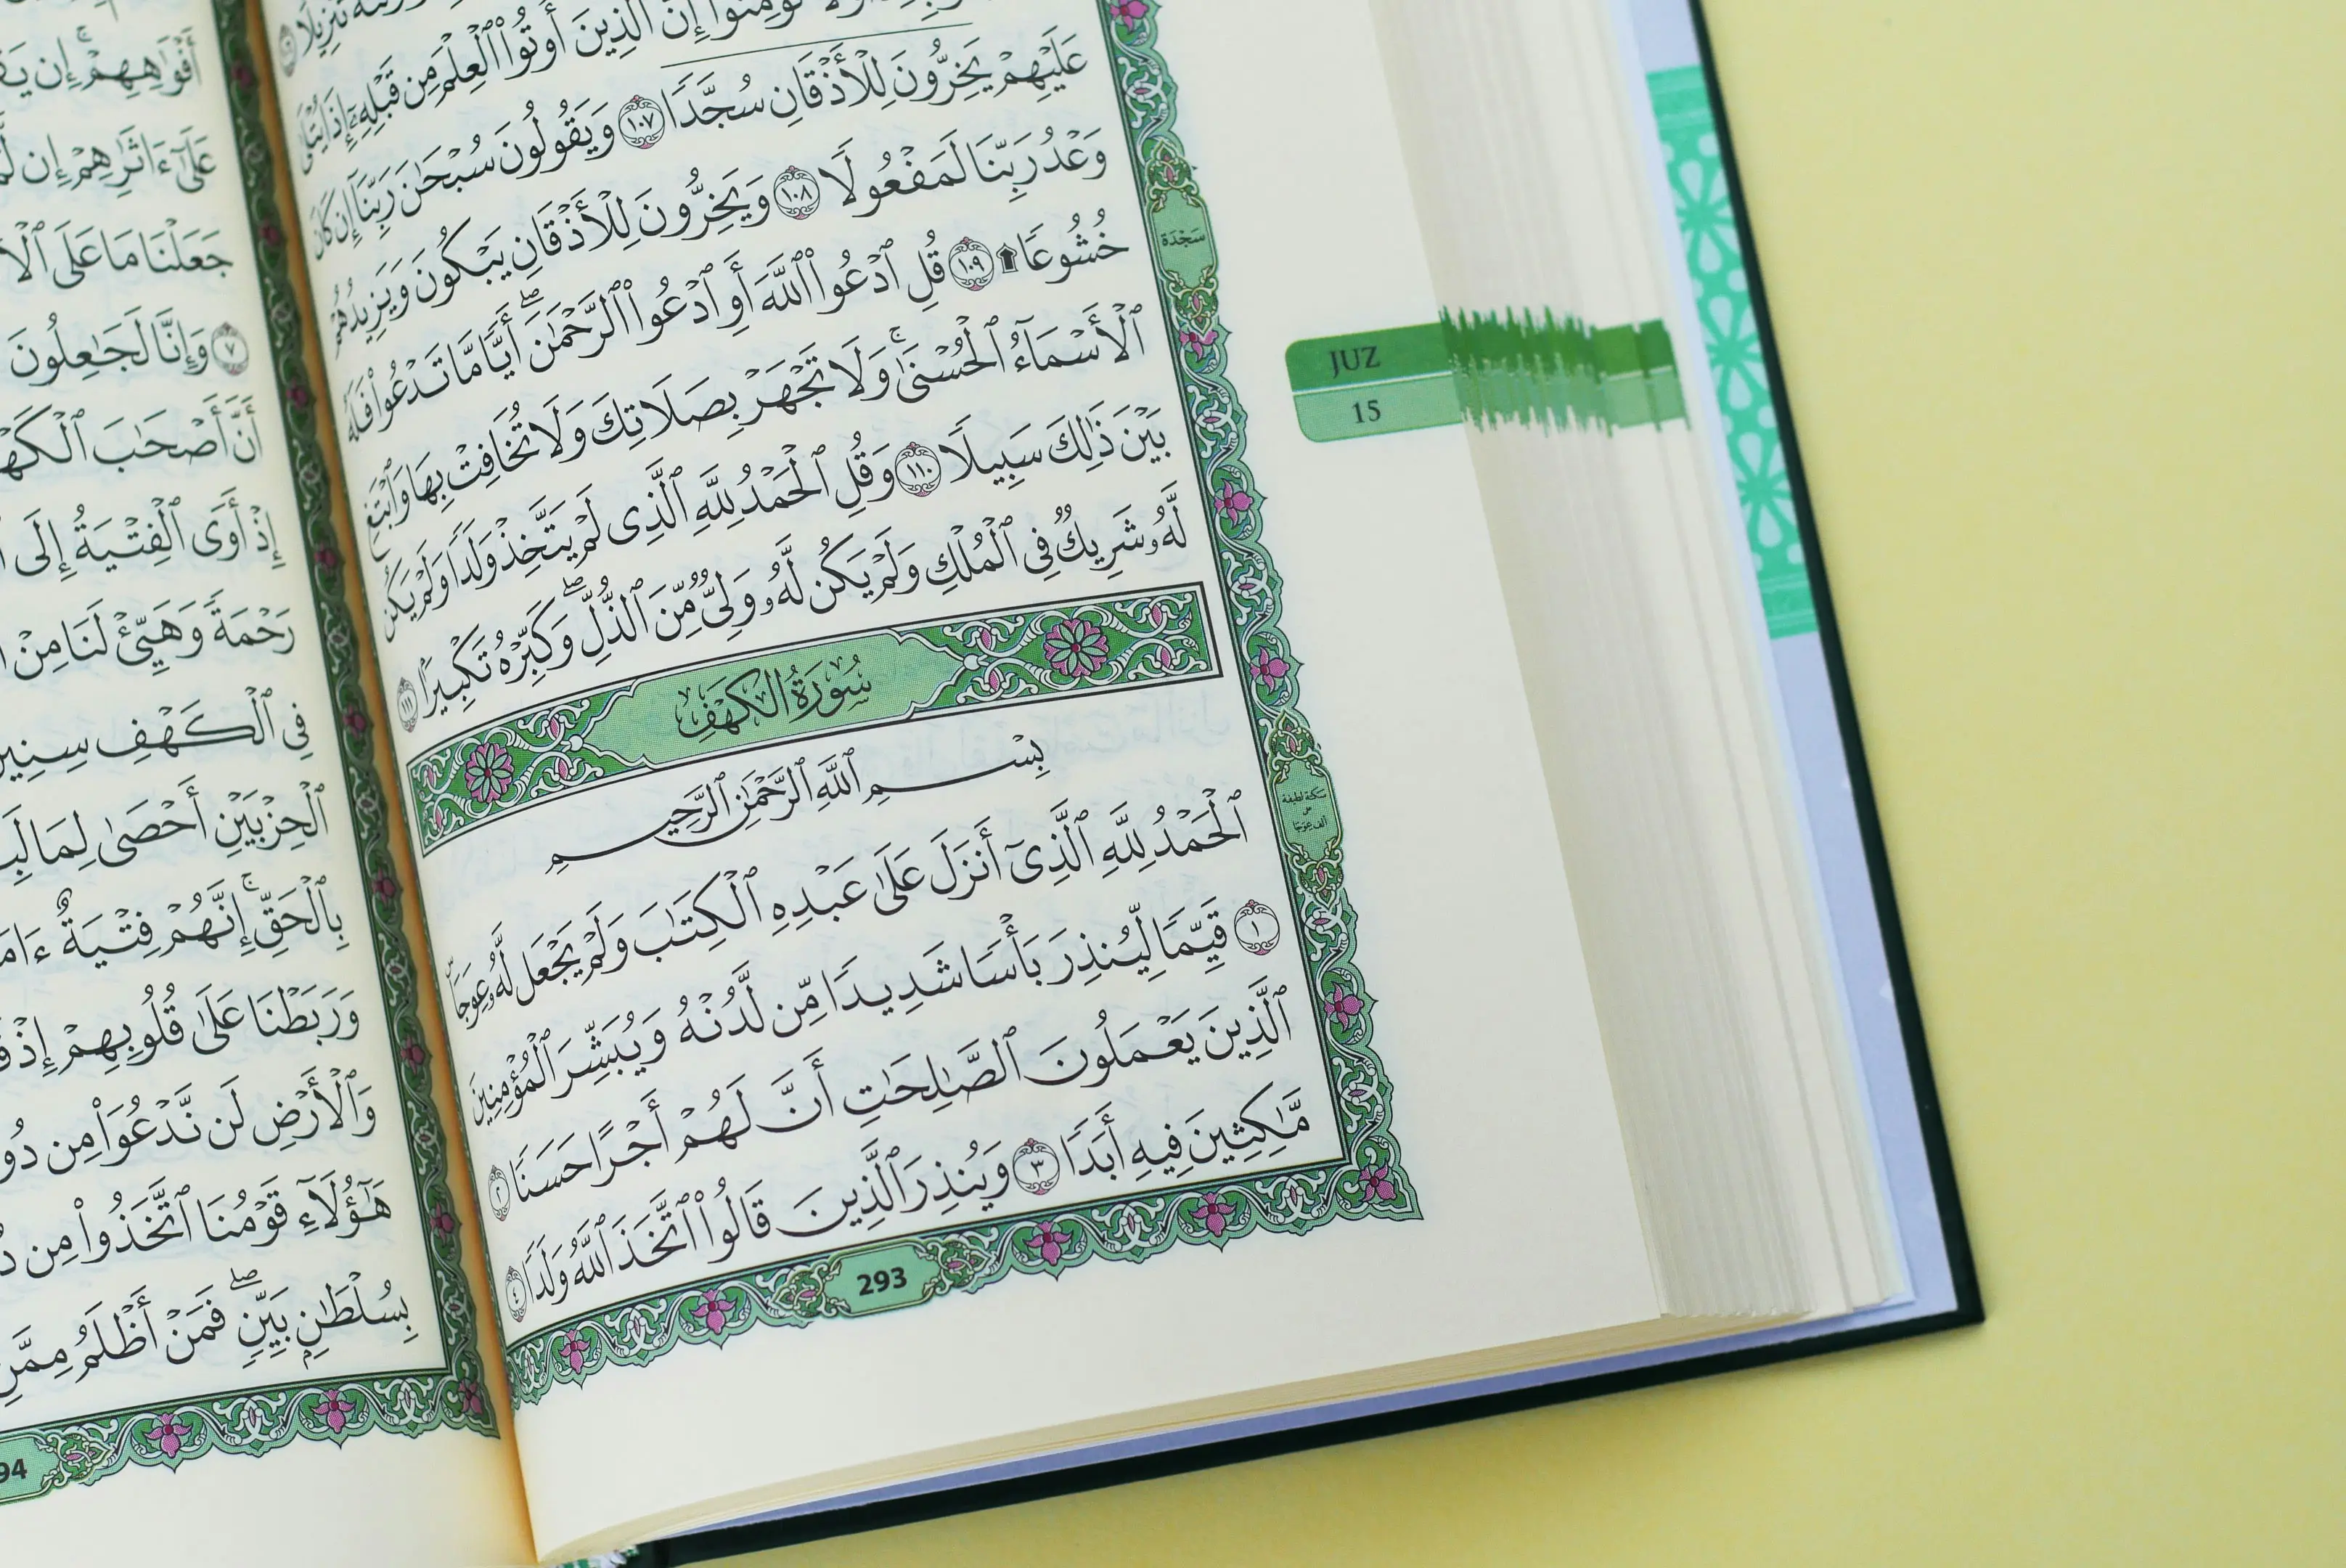 تَنزِيلًا
تُؤْمِنُوٓا۟ إِنَّ ٱلَّذِينَ أُوتُوا۟ ٱلْعِلْمَ مِن قَبْلِهِۦٓ إِذَا يُتْلَىٰ
عَلَيْهِمْ يَخِرُّونَ لِلْأَذْقَانِ سُجَّدًا ١٠٧ وَيَقُولُونَ سُبْحَٰنَ رَبِّنَآ إِن كَانَ
وَعْدُ رَبِّنَا لَمَفْعُولًا ١٠٨ وَيَخِرُّونَ لِلْأَذْقَانِ يَبْكُونَ وَيَزِيدُهُمْ
خُشُوعًا ۩ ١٠٩ قُلِ ٱدْعُوا۟ ٱللَّهَ أَوِ ٱدْعُوا۟ ٱلرَّحْمَٰنَ ۖ أَيًّا مَّا تَدْعُوا۟ فَلَهُ
ٱلْأَسْمَآءُ ٱلْحُسْنَىٰ ۚ وَلَا تَجْهَرْ بِصَلَاتِكَ وَلَا تُخَافِتْ بِهَا وَٱبْتَغِ
بَيْنَ ذَٰلِكَ سَبِيلًا ١١٠ وَقُلِ ٱلْحَمْدُ لِلَّهِ ٱلَّذِى لَمْ يَتَّخِذْ وَلَدًا وَلَمْ يَكُن
لَّهُۥ شَرِيكٌ فِى ٱلْمُلْكِ وَلَمْ يَكُن لَّهُۥ وَلِىٌّ مِّنَ ٱلذُّلِّ ۖ وَكَبِّرْهُ تَكْبِيرًۢا ١١١
سُورَةُ الكَهْفِ
بِسْمِ ٱللَّهِ ٱلرَّحْمَٰنِ ٱلرَّحِيمِ
ٱلْحَمْدُ لِلَّهِ ٱلَّذِىٓ أَنزَلَ عَلَىٰ عَبْدِهِ ٱلْكِتَٰبَ وَلَمْ يَجْعَل لَّهُۥ عِوَجَا ۜ
١ قَيِّمًا لِّيُنذِرَ بَأْسًا شَدِيدًا مِّن لَّدُنْهُ وَيُبَشِّرَ ٱلْمُؤْمِنِينَ
ٱلَّذِينَ يَعْمَلُونَ ٱلصَّٰلِحَٰتِ أَنَّ لَهُمْ أَجْرًا حَسَنًا ٢
مَّٰكِثِينَ فِيهِ أَبَدًا ٣ وَيُنذِرَ ٱلَّذِينَ قَالُوا۟ ٱتَّخَذَ ٱللَّهُ وَلَدًا ٤
293
سَجْدَة
سكتة لطيفة
على
ألف عِوَجَا
JUZ
15
أَفْوَٰهِهِمْ ۚ إِن
عَلَىٰٓ ءَاثَٰرِهِمْ إِن
جَعَلْنَا مَا عَلَى
٧ وَإِنَّا لَجَٰعِلُونَ
أَنَّ أَصْحَٰبَ
إِذْ أَوَى ٱلْفِتْيَةُ إِلَى
رَحْمَةً وَهَيِّئْ لَنَا مِنْ
فِى ٱلْكَهْفِ سِنِينَ
ٱلْحِزْبَيْنِ أَحْصَىٰ
بِٱلْحَقِّ ۚ إِنَّهُمْ فِتْيَةٌ
وَرَبَطْنَا عَلَىٰ قُلُوبِهِمْ إِذْ
وَٱلْأَرْضِ لَن نَّدْعُوَا۟ مِن
هَٰٓؤُلَآءِ قَوْمُنَا ٱتَّخَذُوا۟ مِن
بِسُلْطَٰنٍۭ بَيِّنٍ ۖ فَمَنْ أَظْلَمُ مِمَّنِ
94